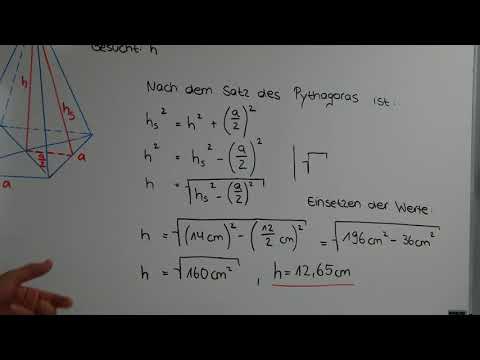 Gesucht: h
Nach dem Satz des Pythagoras ist:
hₛ² = h² + (a/2)²
h² = hₛ² − (a/2)² | √
h = √(hₛ² − (a/2)²)
Einsetzen der Werte:
h = √((14cm)² − (12/2 cm)²) = √(196cm² − 36cm²)
h = √(160cm²) , h = 12,65cm
h
hₛ
a/2
a
a